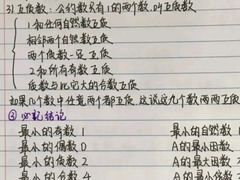 3) 互质数：公约数只有1的两个数，叫互质数
1和任何自然数互质
相邻两个自然数互质
两个质数一定互质
2和所有奇数互质
质数与比它大的分数互质
如果几个数中任意两个都互质，这说这几个数两两互质
④ 必記结论
最小的奇数1 最小的自然数
最小的偶数0 A的最小因数
最小的质数2 A的最大因数
最小的合数4 A的最小倍数